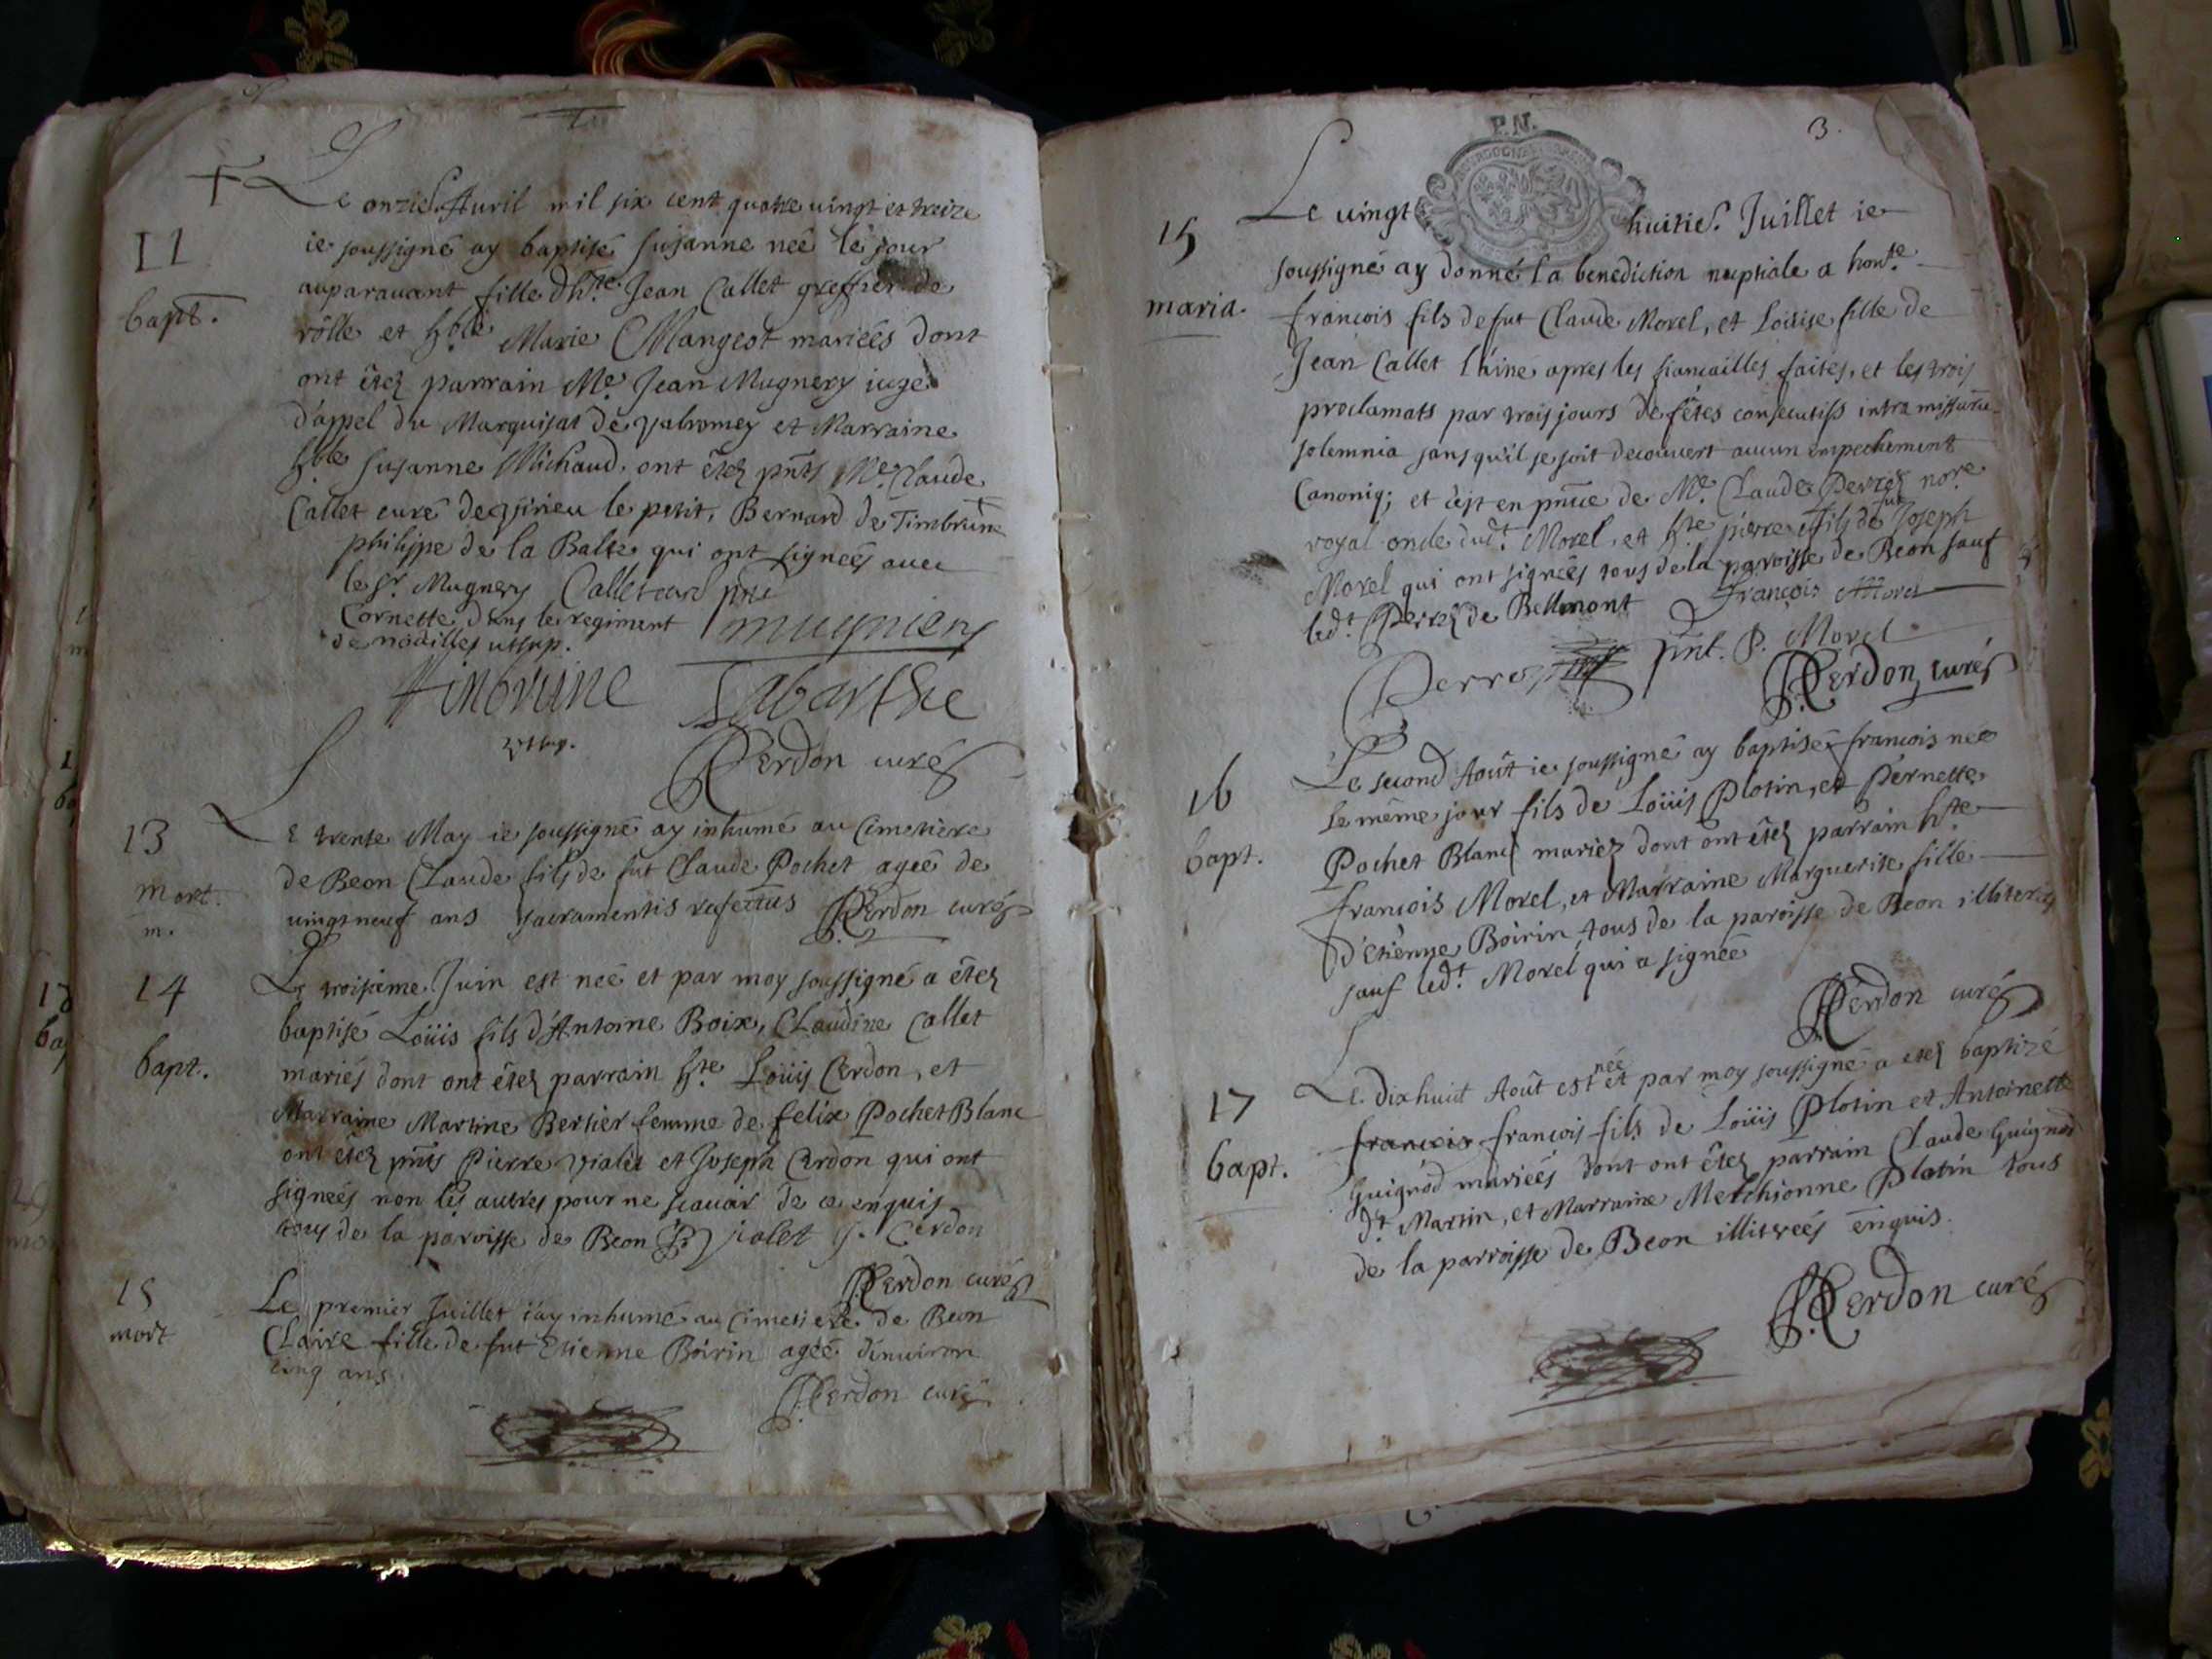 Le onzie. Auril mil six cent quatre uingt et treize
11
ie soussigné ay baptisé Susanne neé le jour
auparauant fille d'h.te Jean Callet greffier de
bapt.
rôlle et h.ble Marie Mangeot mariées dont
ont étez parrain M.e Jean Mugnery iuge
d'appel du Marquisat de Valromey et Marraine
h.ble Susanne Michaud. ont étez pnts M.e Claude
Callet curé de le petit, Bernard de Timbrune
philippe de la qui ont signeés auec
le S.r Mugnery Callet curé pnt
Cornette dans le regiment mugniery
de noailles utsup.
timbrune Labarthe
utsup.
Cerdon curé
13
Le trente May ie soussigné ay inhumé au Cimetiere
mort.
de Beon Claude fils de fut Claude Pochet ageé de
m.
uingt neuf ans sacramentis refectus Cerdon curé
14
Le troisieme Juin est neé et par moy soussigné a étez
baptisé Loüis fils d'Antoine Boix, Claudine Callet
bapt.
mariés dont ont étez parrain h.te Loüis Cerdon, et
Marraine Martine Bertier femme de felix Pochet Blanc
ont étez pnts Pierre Vialet et Joseph Cerdon qui ont
signeés non les autres pour ne scauoir de ce enquis
tous de la paroisse de Beon P Vialet J. Cerdon
Cerdon curé
15
mort
Le premier Juillet i'ay inhumé au Cimetiere de Beon
Claire fille de fut Etienne Boirin ageé d'enuiron
cinq ans.
Cerdon curé
P.N.
3.
Le uingt huitie. Juillet ie
15
soussigné ay donné la benediction nuptiale a hon.te
maria.
francois fils de fut Claude Morel, et Loüise fille de
Jean Callet l'ainé apres les fiancailles faites, et les trois
proclamats par trois jours de fêtes consecutifs intra missaru
solemnia sans qu'il se soit decouuert aucun empechement
Canoniq; et c'est en pnce de M.e Claude Perrez no.re
royal oncle dud.t Morel, et h.te pierre fils de fut Joseph
Morel qui ont signeés tous de la paroisse de Beon sauf
led.t Perrez de Bellmont françois Morel
Perrez pnt. P. Morel
Cerdon curé
16
Le second Août ie soussigné ay baptisé francois neé
le même jour fils de Loüis Plotin, et Pernette
bapt.
Pochet Blanc mariez dont ont étez parrain h.te
francois Morel, et Marraine Marguerite fille
d'Etienne Boirin tous de la paroisse de Beon illiterés
sauf led.t Morel qui a signeé
Cerdon curé
17
Le dixhuit Août est neé et par moy soussigné a etez baptizé
bapt.
francois francois fils de Loüis Plotin et Antoinette
Guignod mariées dont ont étez parrain Claude Guignod
d.t Martin, et Marraine Melchionne Plotin tous
de la parroisse de Beon illitreés enquis.
Cerdon curé